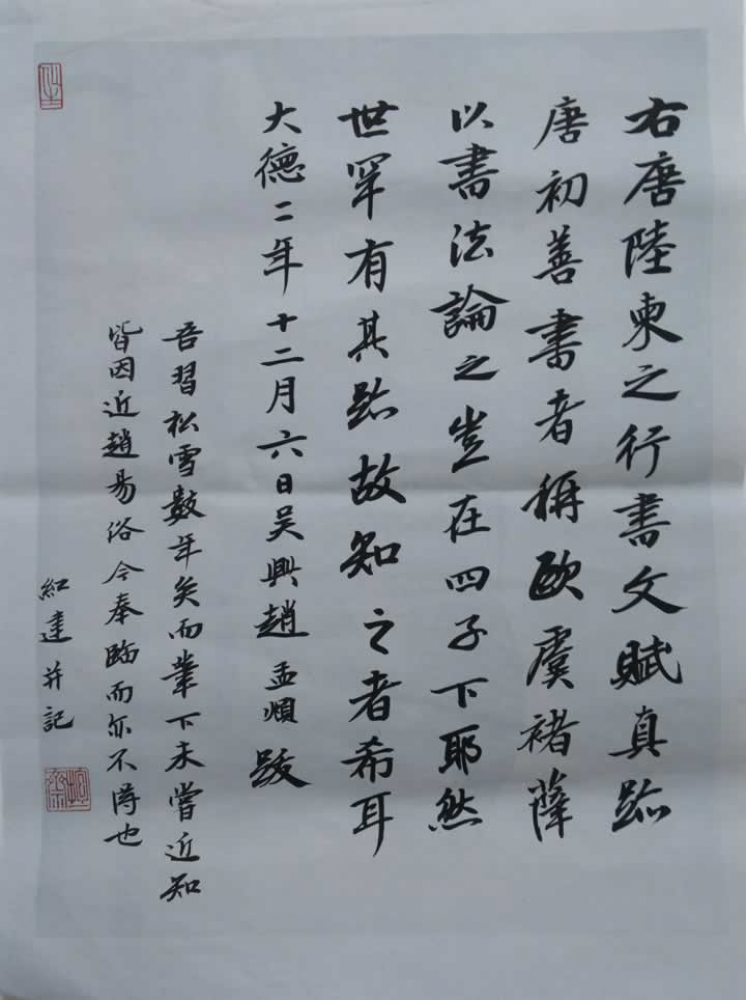 右唐陸柬之行書文賦真跡
唐初善書者稱歐虞褚薛
以書法論之豈在四子下耶然
世罕有其跡故知之者希耳
大德二年十二月六日吴興趙孟頫跋
吾習松雪數年矣而筆下未嘗近知
皆因近趙易俗今奉臨而亦不得也
紅建并記